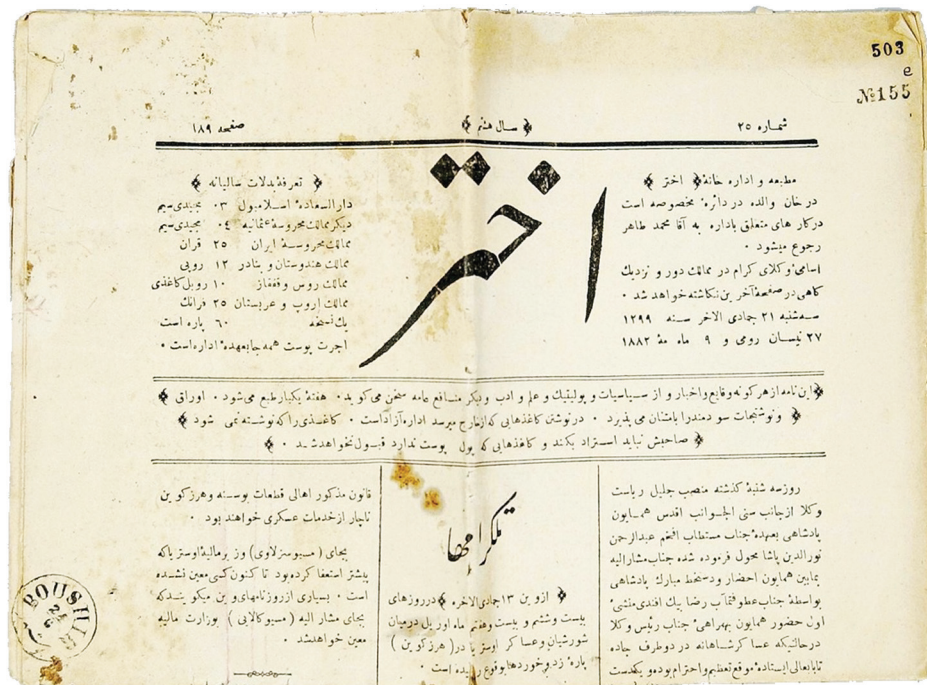 503
e
№155
شماره ٢٥
﴿ سال هشتم ﴾
صفحه ١٨٩
مطبعه و اداره خانهٔ ﴿ اختر ﴾
در خان والده در دائرهٔ مخصوصه است
درکار های متعلق باداره به آقا محمد طاهر
رجوع میشود ٠
اسامیٔ وکلای کرام در ممالك دور و نزدیك
کاهی در صفحهٔ آخرین نکاشته خواهد شد ٠
سه‌شنبه ٢١ جمادی الاخر سنه ١٢٩٩
٢٧ نیسان رومی و ٩ ماه مهٔ ١٨٨٢
اختر
﴿ تعرفهٔ بدلات سالیانه ﴾
دارالسعادهٔ اسلامبول ٠٣ مجیدی سیم
دیکر ممالك محروسهٔ عثمانیه ٠٤ مجیدی سیم
ممالك محروسهٔ ایران ٢٥ قران
ممالك هندوستان و بنادر ١٢ روپی
ممالك روس و قفقاز ١٠ روبل کاغذی
ممالك اروپ و عربستان ٢٥ فرانك
یك نسخه ٦٠ پاره است
اجرت پوست همه جا بعهدهٔ اداره است ٠
﴿ این نامه از هر کونه وقایع و اخبار و از سیاسیات و پولیتیك و علم و ادب و دیکر منافع عامه سخن می کوید ٠ هفتهٔ یکبار طبع می شود ٠ اوراق ﴾
﴿ و نوشتجات سودمند را بامتنان می پذیرد ٠ در نوشتن کاغذهایی که از خارج میرسد اداره آزاد است ٠ کاغذی را که نوشته نمی شود ﴾
﴿ صاحبش نباید استرداد بکند و کاغذهایی که پول پوست ندارد قبول نخواهد شد ٠ ﴾
روز سه شنبهٔ کذشته منصب جلیل ریاست
وکلا از جانب سنی الجوانب اقدس همایون
پادشاهی بعهدهٔ جناب مستطاب افخم عبدالرحمن
نورالدین پاشا محول فرموده شده جناب مشارالیه
بمابین همایون احضار و دستخط مبارك پادشاهی
بواسطهٔ جناب عطوفتمآب رضا بیك افندی منشیٔ
اول حضور همایون بهمراهیٔ جناب رئیس وکلا
در حالتیکه عساکر شاهانه در دو طرف جاده
تا بابعالی ایستاده موقع تعظیم و احترام بودم و یکدست
تلکرامها
﴿ از وین ١٣ جمادی الاخره ﴾ در روزهای
بیست و ششم و بیست و هفتم ماه اوریل درمیان
شورشیان و عساکر اوستریا در ( هرزکوین )
پارهٔ زد و خوردها بوقوع رسیده است ٠
قانون مذکور اهالی قطعات بوسنه و هرزکوین
ناچار از خدمات عسکری خواهند بود ٠
بجای ( مسیو سزلاوی ) وزیر مالیهٔ اوستریا که
پیشتر استعفا کرده بود تا کنون کسی معین نشده
است ٠ بسیاری از روزنامهای وین میکویند که
بجای مشار الیه ( مسیو کالای ) بوزارت مالیه
معین خواهد شد ٠
BOUSHIR